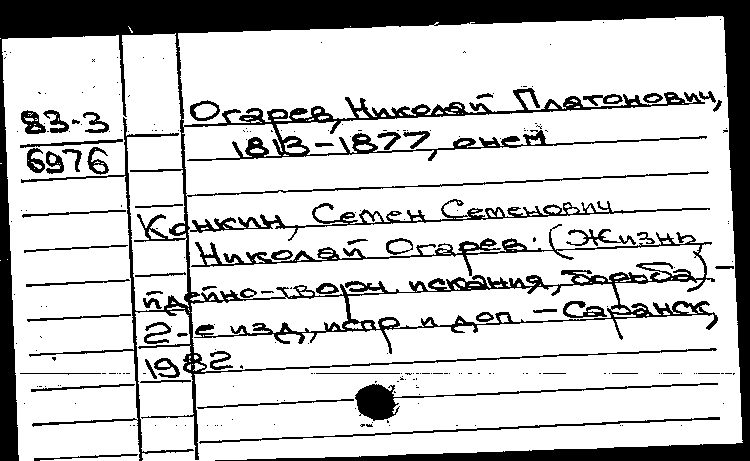 83-3
6976
Огарев, Николай Платонович,
1813-1877, о нем
Конкин, Семен Семенович.
Николай Огарев: (Жизнь,
идейно-творч. искания, борьба) -
2-е изд., испр. и доп. - Саранск,
1982.